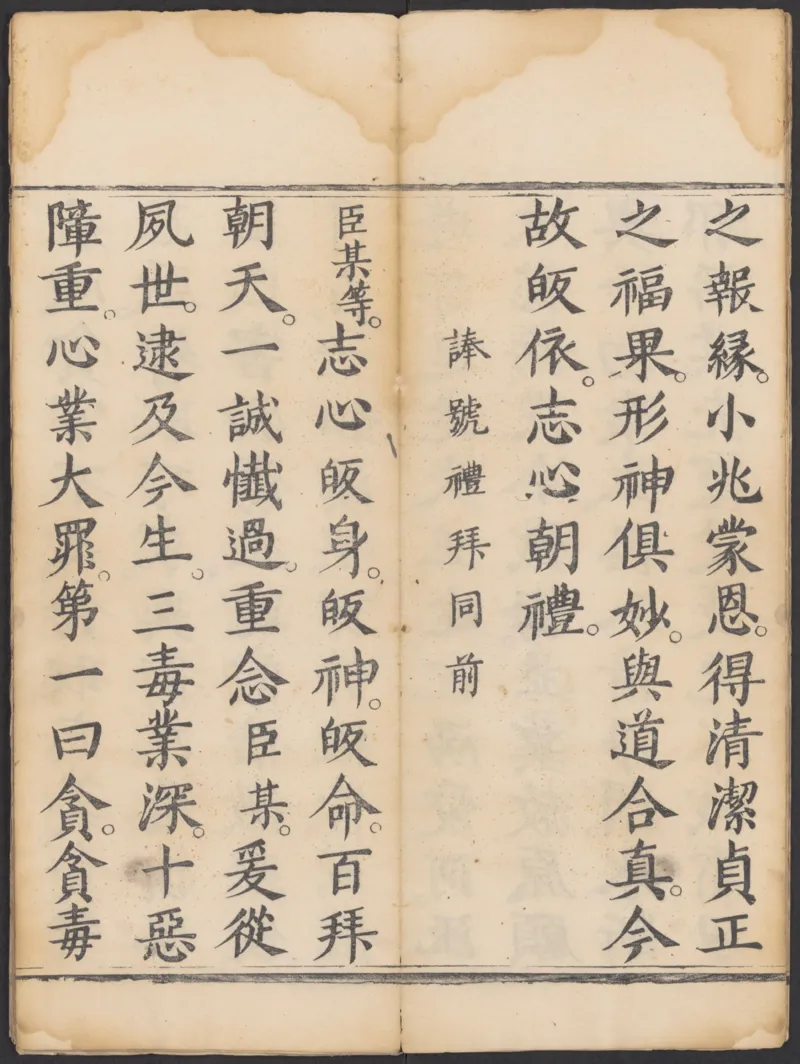 之報緣。小兆蒙恩。得清潔貞正
之福果。形神俱妙。與道合真。今
故皈依。志心朝禮。
諱號禮拜同前
臣某等。志心皈身。皈神。皈命。百拜
朝天。一誠懺過。重念臣某。爰從
夙世。逮及今生。三毒業深。十惡
障重。心業大罪。第一曰貪。貪毒